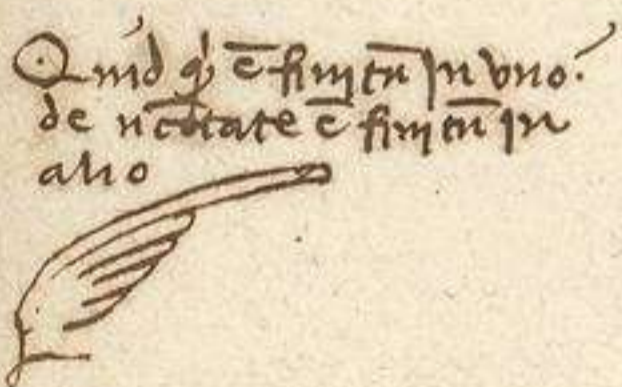 Quid qd ē finitū In vno.
de ncc̄itate ē finitū in
alio